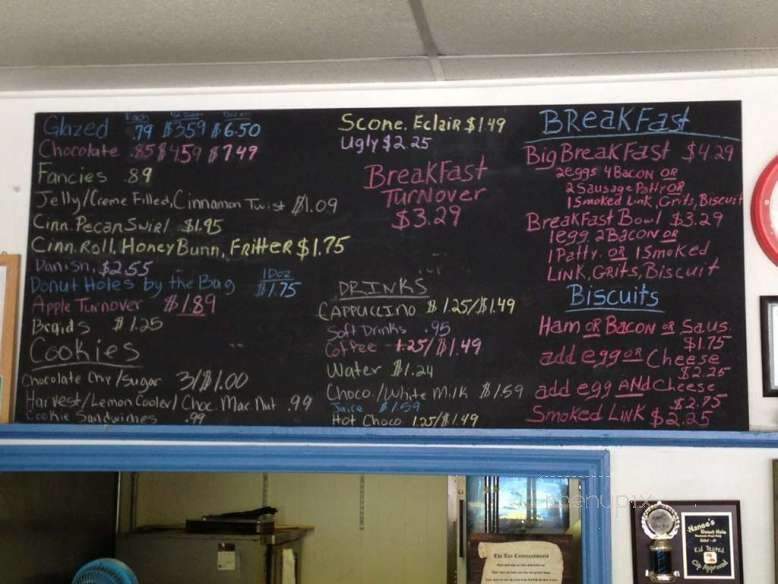 Each ½ Dozen Dozen
Glazed .79 $3.59 $6.50
Chocolate .85 $4.59 $7.49
Fancies .89
Jelly/Creme Filled, Cinnamon Twist $1.09
Cinn. Pecan Swirl $1.95
Cinn. Roll, Honey Bunn, Fritter $1.75
Danish, $2.55
Donut Holes by the Bag 1 Doz $1.75
Apple Turnover $1.89
Braids $1.25
Cookies
Chocolate Chy/Sugar 3/$1.00
Harvest/Lemon Cooler/Choc. Mac Nut .99
Cookie Sandwiches .99
Scone, Eclair $1.49
Ugly $2.25
Breakfast
Turnover
$3.29
DRINKS
CAPPUCCINO $1.25/$1.49
Soft Drinks .95
Coffee 1.25/$1.49
Water $1.24
Choco./White Milk $1.59
Juice $1.59
Hot Choco 1.25/$1.49
BReakFast
Big BreakFast $4.29
2eggs 4 Bacon OR
2 Sausage Patty OR
1 Smoked Link, Grits, Biscuit
BreakFast Bowl $3.29
1egg 2Bacon OR
1 Patty OR 1 Smoked
Link, Grits, Biscuit
Biscuits
Ham OR Bacon OR Saus.
$1.75
add egg OR Cheese
$2.25
add egg AND Cheese
$2.75
Smoked Link $2.25
menupix
The Ten Commandments
Nanee's
Donut Hole
Kid Tested
Cop Approved